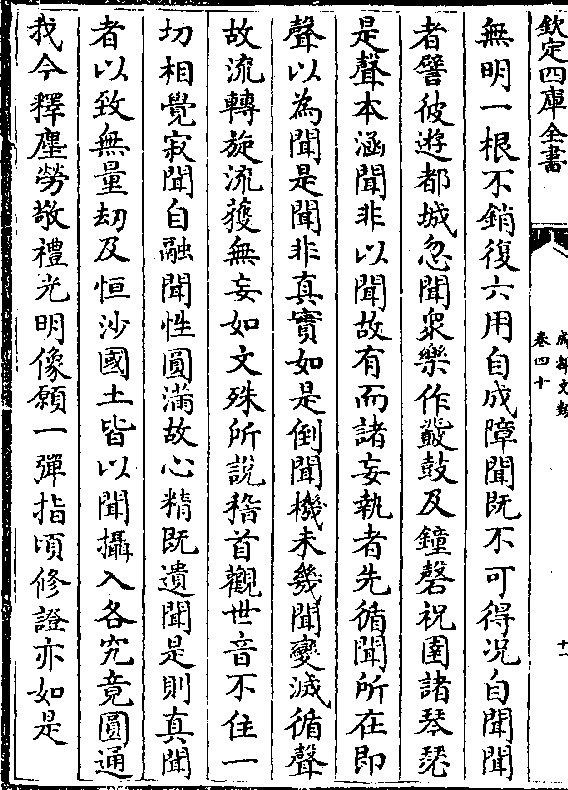 欽定四庫全書
成都文類
卷四十
十一
無明一根不銷復六用自成障聞既不可得况自聞聞
者譬彼遊都城忽聞衆樂作鼗鼓及鐘磬祝圉諸琴瑟
是聲本涵聞非以聞故有而諸妄執者先循聞所在即
聲以為聞是聞非真實如是倒聞機未幾聞變滅循聲
故流轉旋流䕶無妄如文殊所說稽首觀世音不住一
切相覺寂聞自融聞性圓滿故心精既遺聞是則真聞
者以致無量刼及恒沙國土皆以聞攝入各究竟圓通
我今釋塵勞敬禮光明像願一彈指頃修證亦如是